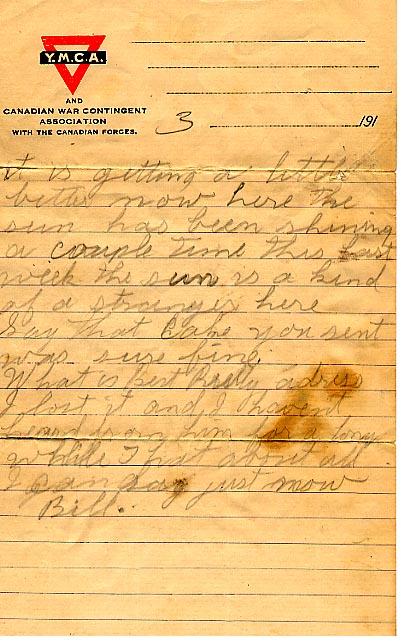 Y.M.C.A.
AND
CANADIAN WAR CONTINGENT
ASSOCIATION
WITH THE CANADIAN FORCES.
3
191
it is getting a little
better now here the
sun has been shining
a couple time this last
week the sun is a kind
of a stranger here
Say that Cake you sent
was sure fine
What is Bert adress
I lost it and I havent
heard from him for a long
while I about all
I can say just now
Bill.